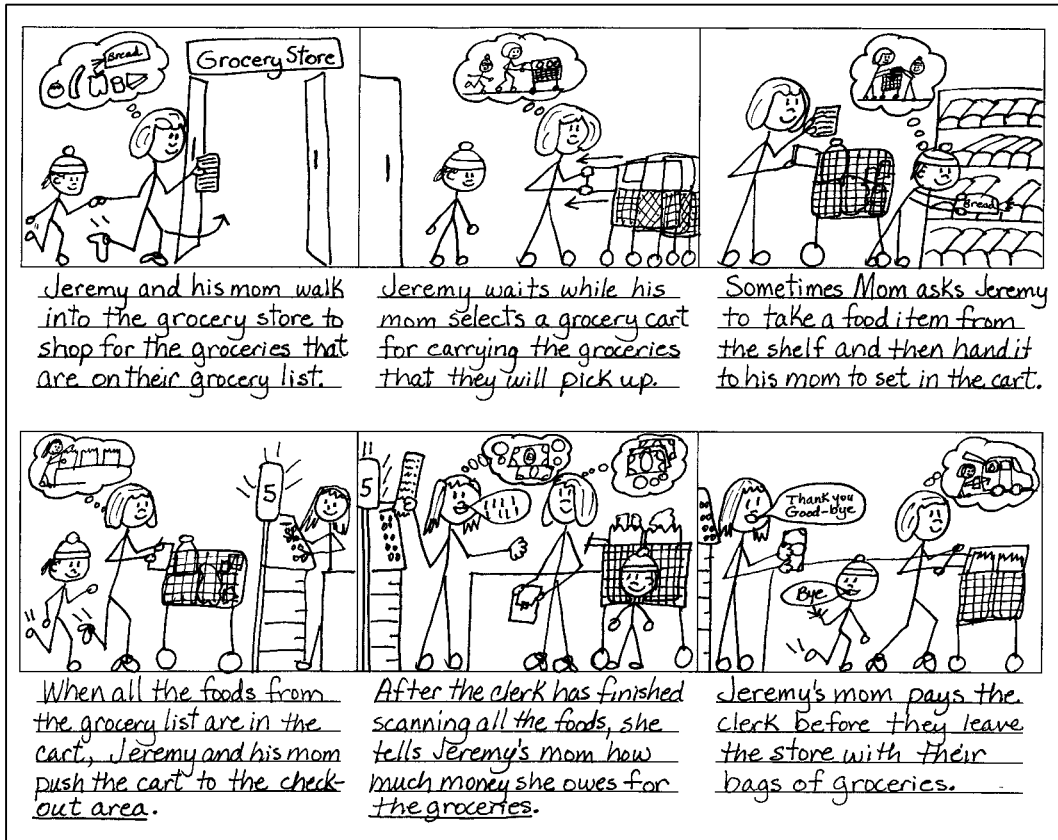 Bread
Grocery Store
Bread
Jeremy and his mom walk
into the grocery store to
shop for the groceries that
are on their grocery list.
Jeremy waits while his
mom selects a grocery cart
for carrying the groceries
that they will pick up.
Sometimes Mom asks Jeremy
to take a food item from
the shelf and then hand it
to his mom to set in the cart.
5
5
Thank you
Good-bye
Bye
When all the foods from
the grocery list are in the
cart, Jeremy and his mom
push the cart to the check-
out area.
After the clerk has finished
scanning all the foods, she
tells Jeremy's mom how
much money she owes for
the groceries.
Jeremy's mom pays the
clerk before they leave
the store with their
bags of groceries.